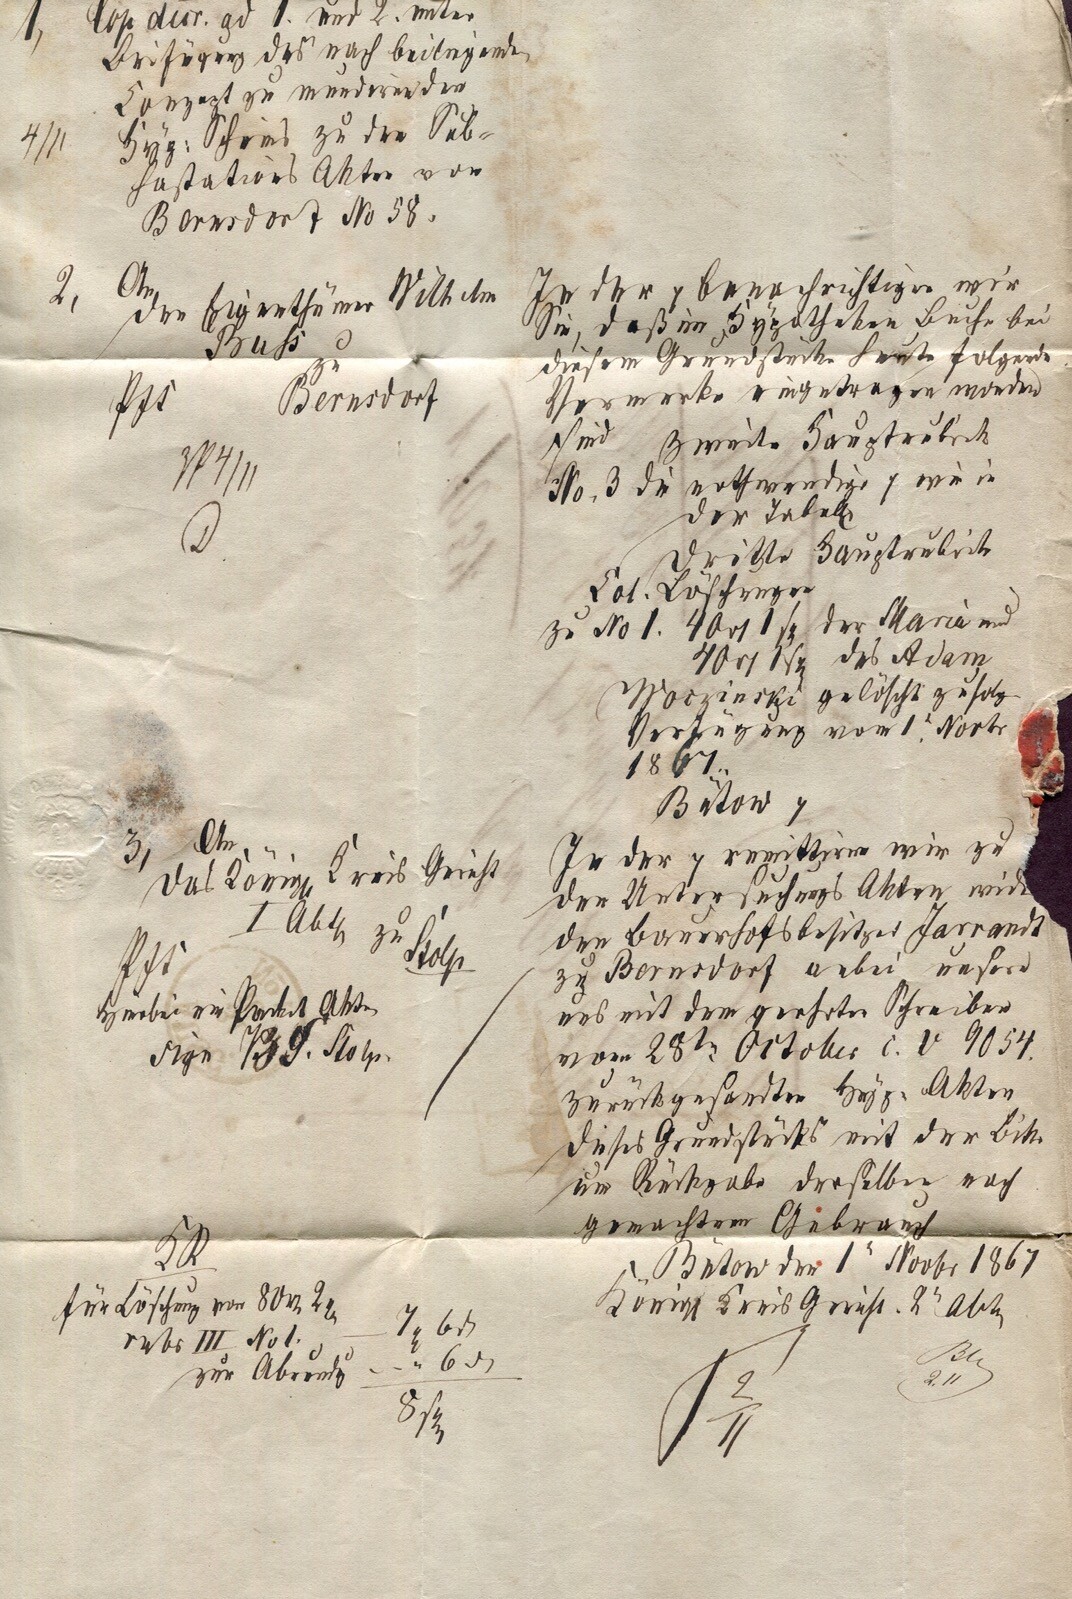 1, Cop decr. ad 1. und 2. unter
Beifügung des nach beiliegendem
Conzept zu mundirenden
4/11 Hyp: Scheins zu den Sub-
hastations Akten von
Bernsdorf No 58.
2, An
den Eigenthümer Wilhelm
Buss
zu
Bernsdorf
4/11
In der p benachrichtigen wir
Sie, daß im Hypotheken Buche bei
diesem Grundstücke heute folgende
Vermerke eingetragen worden
sind zweite Hauptrubrik
No. 3 die nothwendige p wie in
der Tabelle
Dritte Hauptrubrik
Col. Löschungen
zu No 1. 40 1 der Maria und
40 1 des Adam
gelöscht zufolge
Verfügung vom 1. Novbr
1867.
Bütow p
3, An
das Königl Kreis Gericht
I Abth zu
Stolp
Hierbei ein Packet Akten
sign Stolp.
In der p remittiren wir zu
den Untersuchungs Akten wider
den Bauerhofsbesitzer
zu Bernsdorf anbei unsere
uns mit dem geehrten Schreiben
vom 28ten October c. V 9054.
zurückgesandten Hyp. Akten
dieses Grundstücks mit der Bitte
um Rückgabe derselben nach
gemachtem Gebrauch
Bütow den 1 Novbr 1867
Königl Kreis Gericht. 2 Abth
KR
für Löschung von 80 2
rubr III No 1. 7 6
zur Abrundg 6
8
2
11
2.11